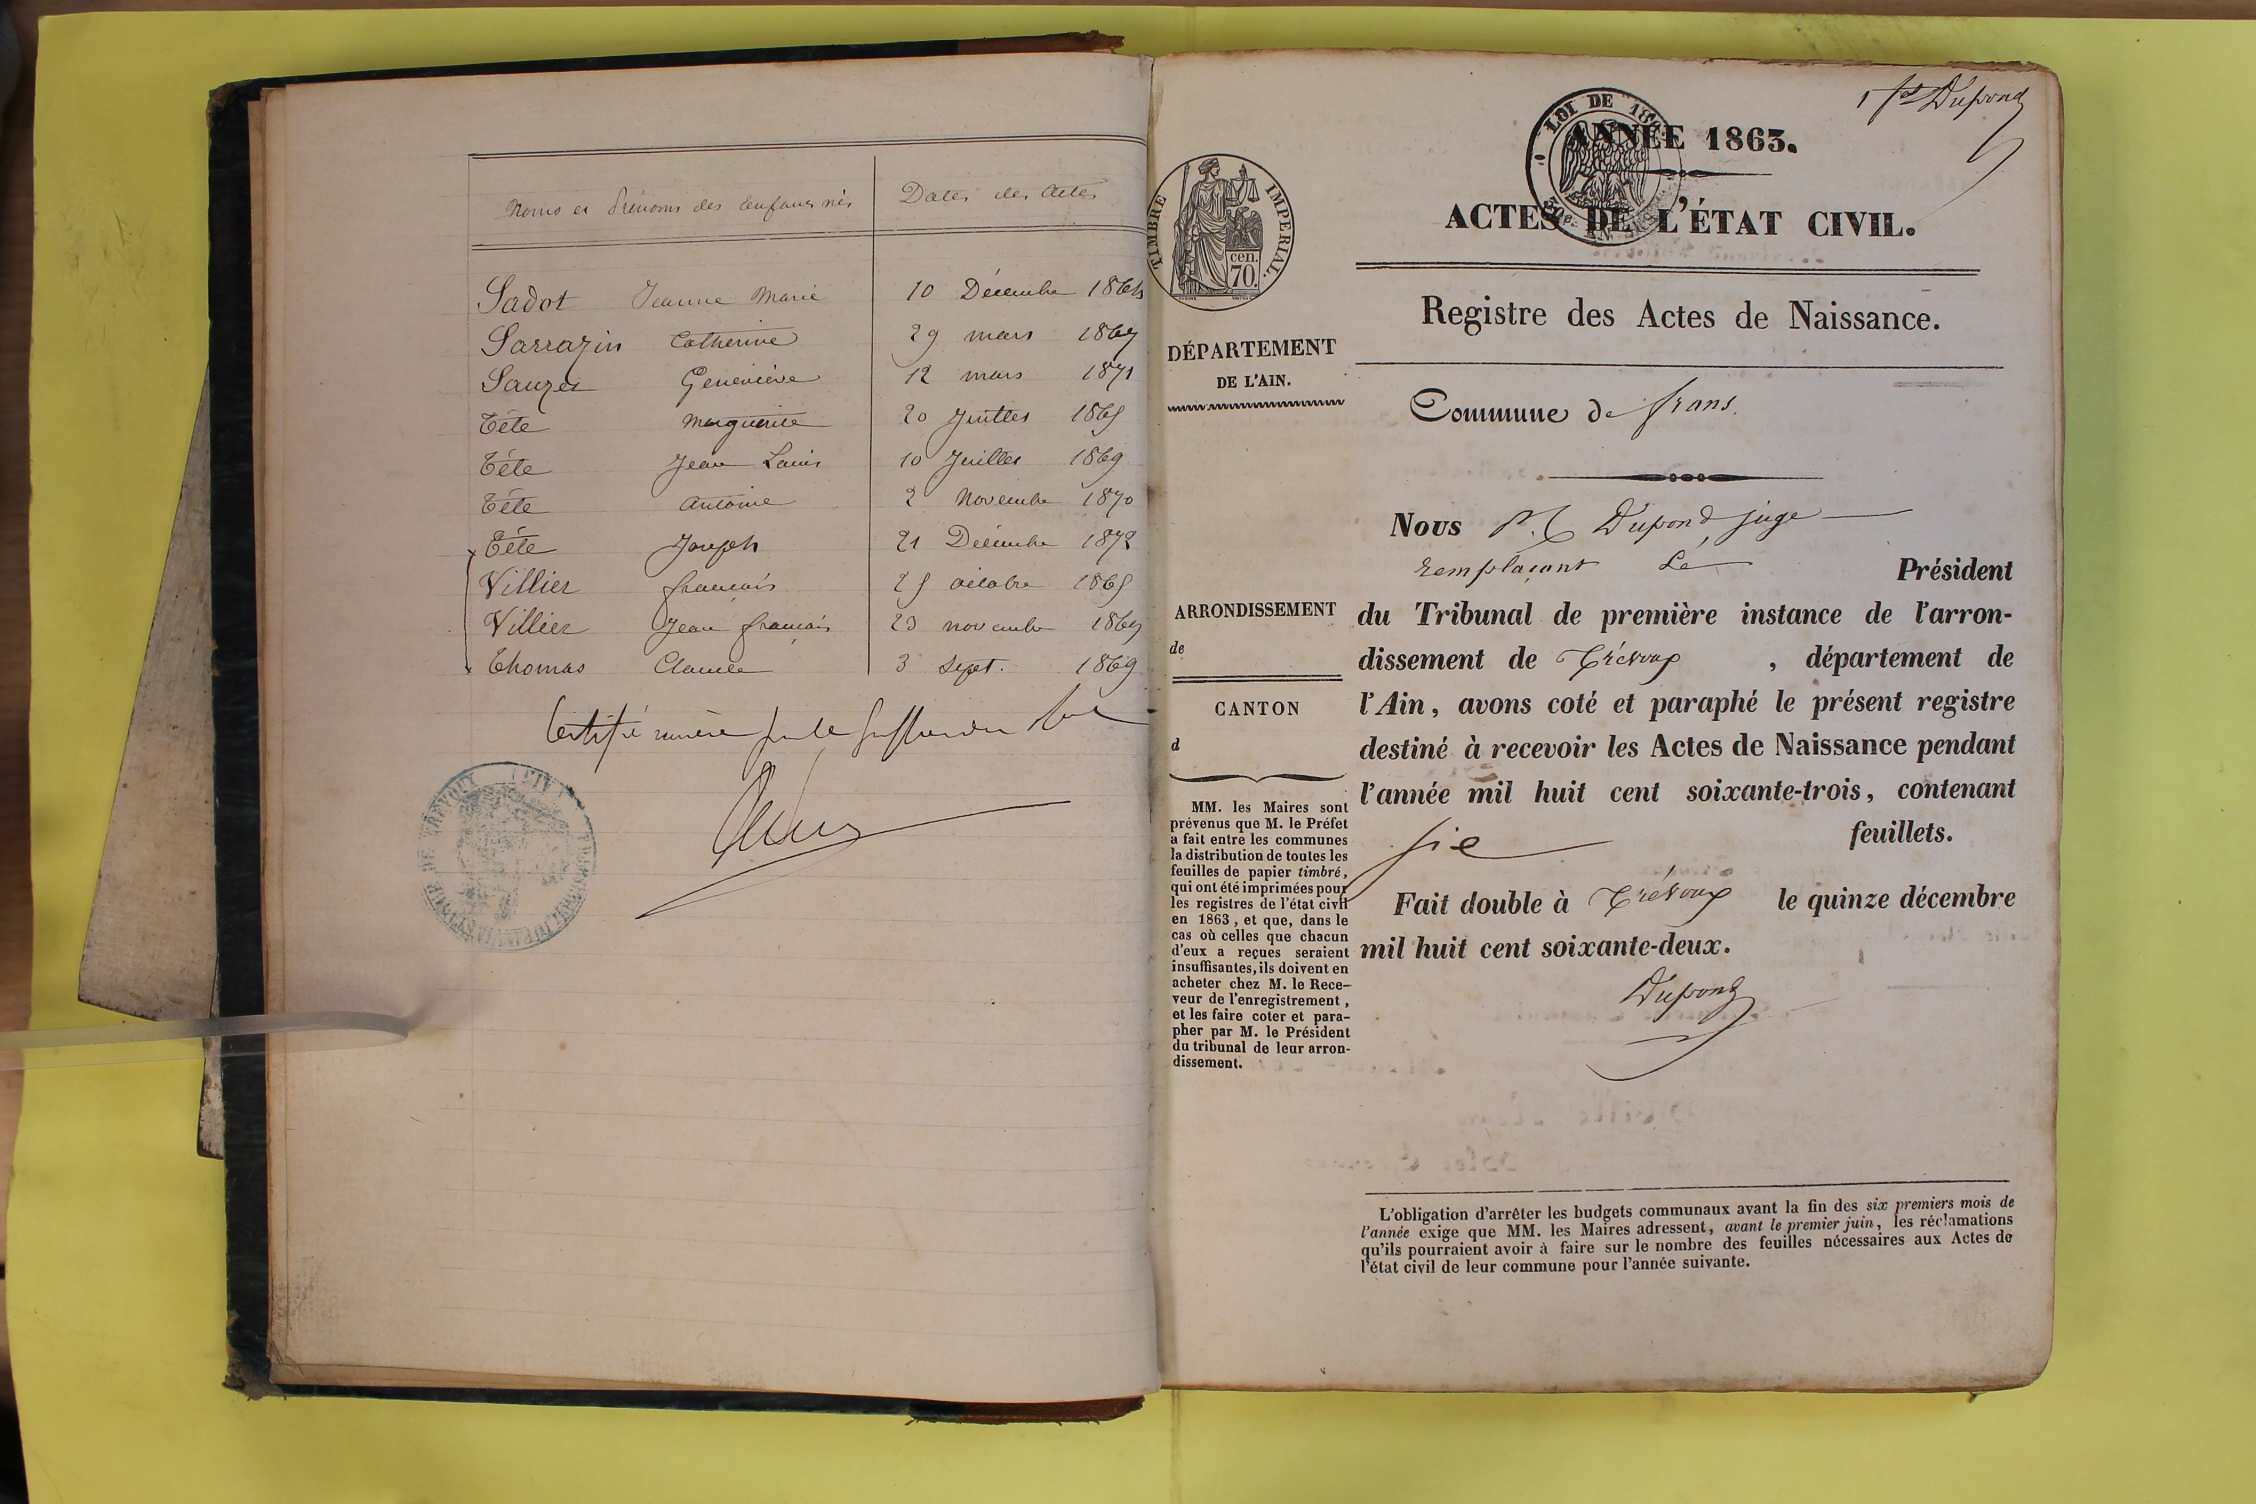 Noms et Prénoms des Enfants nés
Dates des Actes
Sadot Jeanne Marie 10 Décembre 1864
Sarrazin Catherine 29 mars 1867
Sauzet Geneviève 12 mars 1871
Tête Marguerite 20 Juillet 1865
Tête Jean Louis 10 Juillet 1869
Tête Antoine 2 Novembre 1870
Tête Joseph 21 Décembre 1872
Villier françois 25 octobre 1865
Villier Jean françois 23 novembre 1867
Thomas Claude 3 Sept. 1869
Certifié
TIMBRE IMPERIAL.
cen.
70.
DÉPARTEMENT
DE L'AIN.
ARRONDISSEMENT
de
CANTON
d
MM. les Maires sont
prévenus que M. le Préfet
a fait entre les communes
la distribution de toutes les
feuilles de papier timbré,
qui ont été imprimées pour
les registres de l'état civil
en 1863, et que, dans le
cas où celles que chacun
d'eux a reçues seraient
insuffisantes, ils doivent en
acheter chez M. le Rece-
veur de l'enregistrement,
et les faire coter et para-
pher par M. le Président
du tribunal de leur arron-
dissement.
1 Dupond
LOI DE
ANNÉE 1863.
ACTES DE L'ÉTAT CIVIL.
Registre des Actes de Naissance.
Commune de frans.
Nous Dupond juge
remplaçant Le Président
du Tribunal de première instance de l'arron-
dissement de Trévoux, département de
l'Ain, avons coté et paraphé le présent registre
destiné à recevoir les Actes de Naissance pendant
l'année mil huit cent soixante-trois, contenant
feuillets.
Fait double à Trévoux le quinze décembre
mil huit cent soixante-deux.
Dupond
L'obligation d'arrêter les budgets communaux avant la fin des six premiers mois de
l'année exige que MM. les Maires adressent, avant le premier juin, les réclamations
qu'ils pourraient avoir à faire sur le nombre des feuilles nécessaires aux Actes de
l'état civil de leur commune pour l'année suivante.